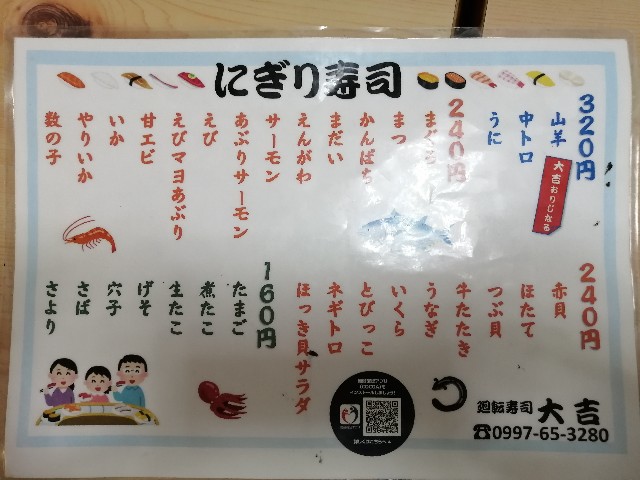 にぎり寿司
320円
山羊
大吉おりじなる
中トロ
うに
240円
まぐろ
まつ
かんぱち
まだい
えんがわ
サーモン
あぶりサーモン
えび
えびマヨあぶり
甘エビ
いか
やりいか
数の子
240円
赤貝
ほたて
つぶ貝
牛たたき
うなぎ
いくら
とびっこ
ネギトロ
ほっき貝サラダ
160円
たまご
煮たこ
生たこ
げそ
穴子
さば
さより
廻転寿司 大吉
☎0997-65-3280